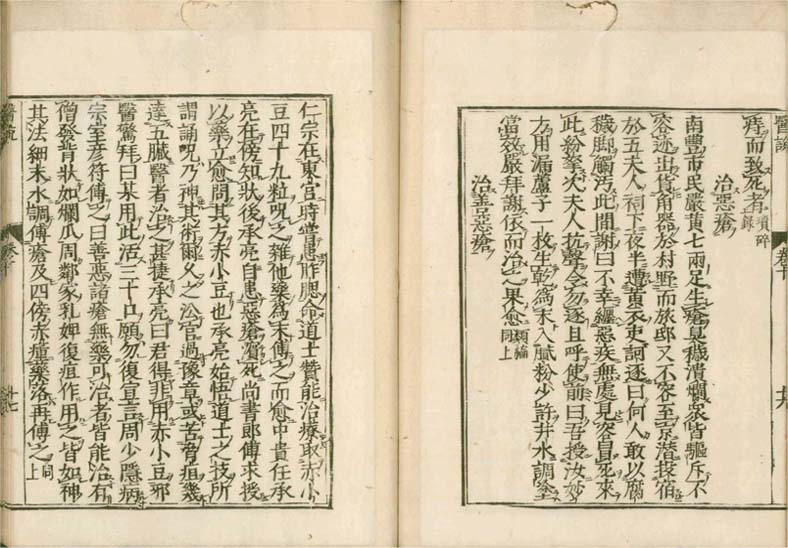 醫說
痔而致死者瑣碎錄
治惡瘡
南豐市民嚴黃七兩足生瘡臭穢潰爛眾皆驅斥不
容迹出貨角器於村野而旅邸又不容至京潜投宿
於五夫人祠下夜半遭黃衣吏訶逐曰何人敢以腐
穢脚觸汚此間謝曰不幸纏惡疾無處見容冒死來
此紛拏火夫人抗聲令勿逐且呼使前曰吾授汝妙
方用漏蘆子一枚生乾為末入膩粉少許井水調塗
當效嚴拜謝依而治之果愈類編同上
治善惡瘡
仁宗在東宮時嘗患痄腮命道士贊能治療取赤小
豆四十九粒呪之雜他藥為末傅之而愈中貴任承
亮在傍知狀後承亮自患惡瘡瀕死尚書郎傅求授
以藥立愈問其方赤小豆也承亮始悟道士之技所
謂誦呪乃神其術爾久之沿官過豫章或苦脅疽幾
達五臟醫者治之甚捷承亮曰君得非用赤小豆邪
醫驚拜曰某用此活三十口願勿復宣言周少隱病
宗室彥符傅之曰善惡諸瘡無藥可治者皆能治有
僧發背狀如爛瓜周鄰家乳婢復疽作用之皆如神
其法細末水調傅瘡及四傍赤腫藥落再傅之同上
醫說